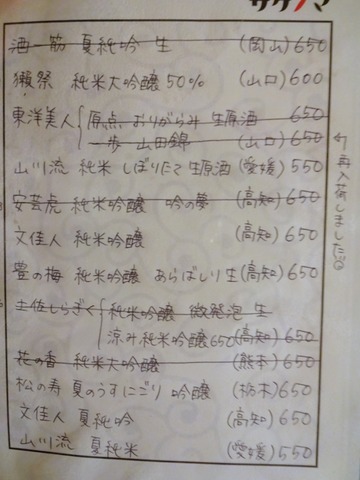 サケノマ
酒一筋 夏純吟 生 (岡山) 650
獺祭 純米大吟醸 50% (山口) 600
東洋美人 原点 おりがらみ 生原酒 650
一歩 山田錦 (山口) 650
山川流 純米 しぼりたて 生原酒 (愛媛) 550
安芸虎 純米吟醸 吟の夢 (高知) 650
文佳人 純米吟醸 (高知) 650
豊の梅 純米吟醸 あらばしり生 (高知) 650
土佐しらぎく 純米吟醸 微発泡 生
涼み純米吟醸 650 (高知) 650
花の香 純米大吟醸 (熊本) 650
松の寿 夏のうすにごり 吟醸 (栃木) 650
文佳人 夏純吟 (高知) 650
山川流 夏純米 (愛媛) 550
再入荷しました